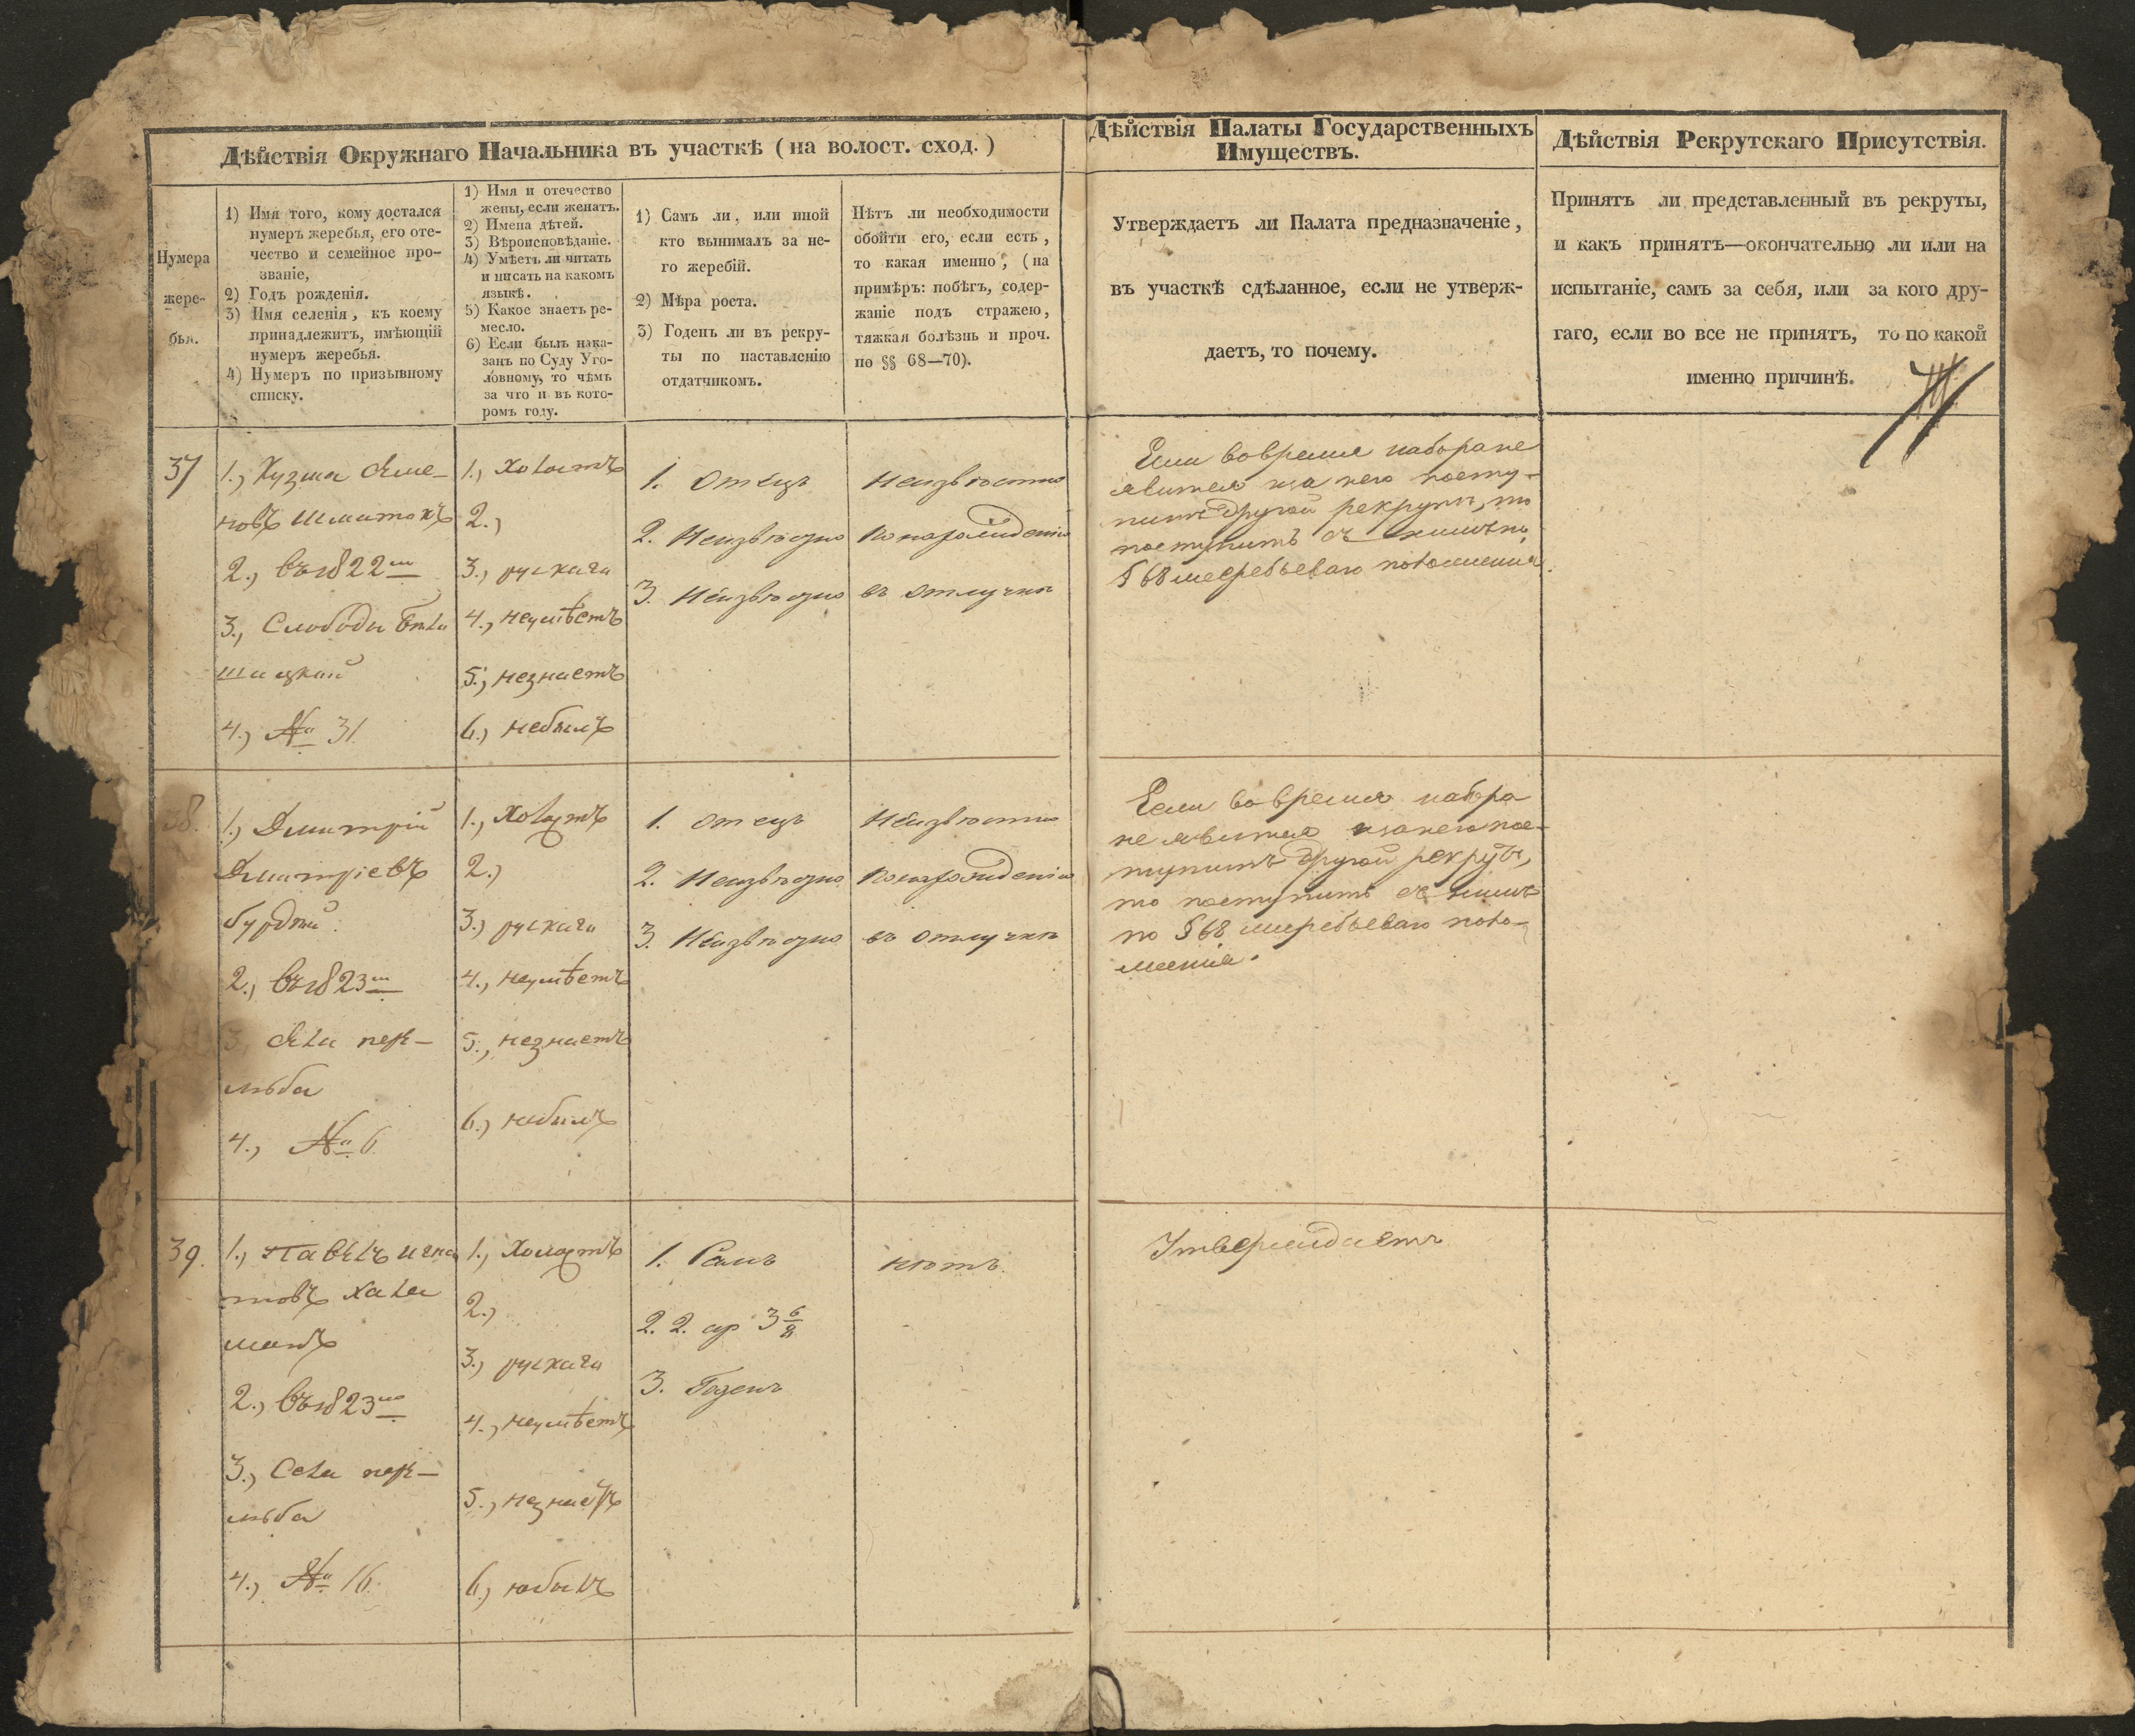 Дѣйствія Окружнаго Начальника въ участкѣ (на волост. сход.)
Дѣйствія Палаты Государственныхъ
Имуществъ.
Дѣйствія Рекрутскаго Присутствія.
Нумера
жере-
бья.
1) Имя того, кому достался
нумеръ жеребья, его оте-
чество и семейное про-
званіе,
2) Годъ рожденія.
3) Имя селенія, къ коему
принадлежитъ, имѣющій
нумеръ жеребья.
4) Нумеръ по призывному
списку.
1) Имя и отечество
жены, если женатъ.
2) Имена дѣтей.
3) Вѣроисповѣданіе.
4) Умѣетъ ли читать
и писать на какомъ
языкѣ.
5) Какое знаетъ ре-
месло.
6) Если былъ нака-
занъ по Суду Уго-
ловному, то чѣмъ
за что и въ кото-
ромъ году.
1) Самъ ли, или иной
кто вынималъ за не-
го жеребій.
2) Мѣра роста.
3) Годенъ ли въ рекру-
ты по наставленію
отдатчикомъ.
Нѣтъ ли необходимости
обойти его, если есть,
то какая именно, (на
примѣръ: побѣгъ, содер-
жаніе подъ стражею,
тяжкая болѣзнь и проч.
по §§ 68—70).
Утверждаетъ ли Палата предназначеніе,
въ участкѣ сдѣланное, если не утверж-
даетъ, то почему.
Принятъ ли представленный въ рекруты,
и какъ принятъ—окончательно ли или на
испытаніе, самъ за себя, или за кого дру-
гаго, если во все не принятъ, то по какой
именно причинѣ.
37
1., Кузма
2., въ 1822мъ
3., Слободы
4., № 31
1., Холостъ
2.,
3., рускаго
4., неумѣетъ
5., незнаетъ
6., небылъ
1. Отецъ
2. Неизвѣсно
3. Неизвѣсно
Неизвѣстно
по нарождению
въ отлучки
Если вовремя набора не
явится и за него посту-
питъ другой рекрутъ, то
поступить съ нимъ по
§ 68 жеребьеваго положения.
38.
1., Дмитрій
Дмитріевъ
2., въ 1823мъ
3,
4., № 6.
1., Холостъ
2.,
3., рускаго
4., неумѣетъ
5., незнаетъ
6., небылъ
1. отецъ
2. Неизвѣсно
3. Неизвѣсно
Неизвѣстно
по нарождению
въ отлучки
Если во время набора
не явится и за него пос-
тупитъ другой рекрутъ,
то поступить съ нимъ
по § 68 жеребьеваго поло-
жения.
39.
1., Павелъ Игна
товъ
2., въ 1823мъ
3., Села
4., № 16.
1., Холостъ
2.,
3., рускаго
4., неумѣетъ
5., незнаетъ
6., небылъ
1. Самъ
2. 2. ар 3 6/8
3. Годенъ
нѣтъ.
Утверждаетъ